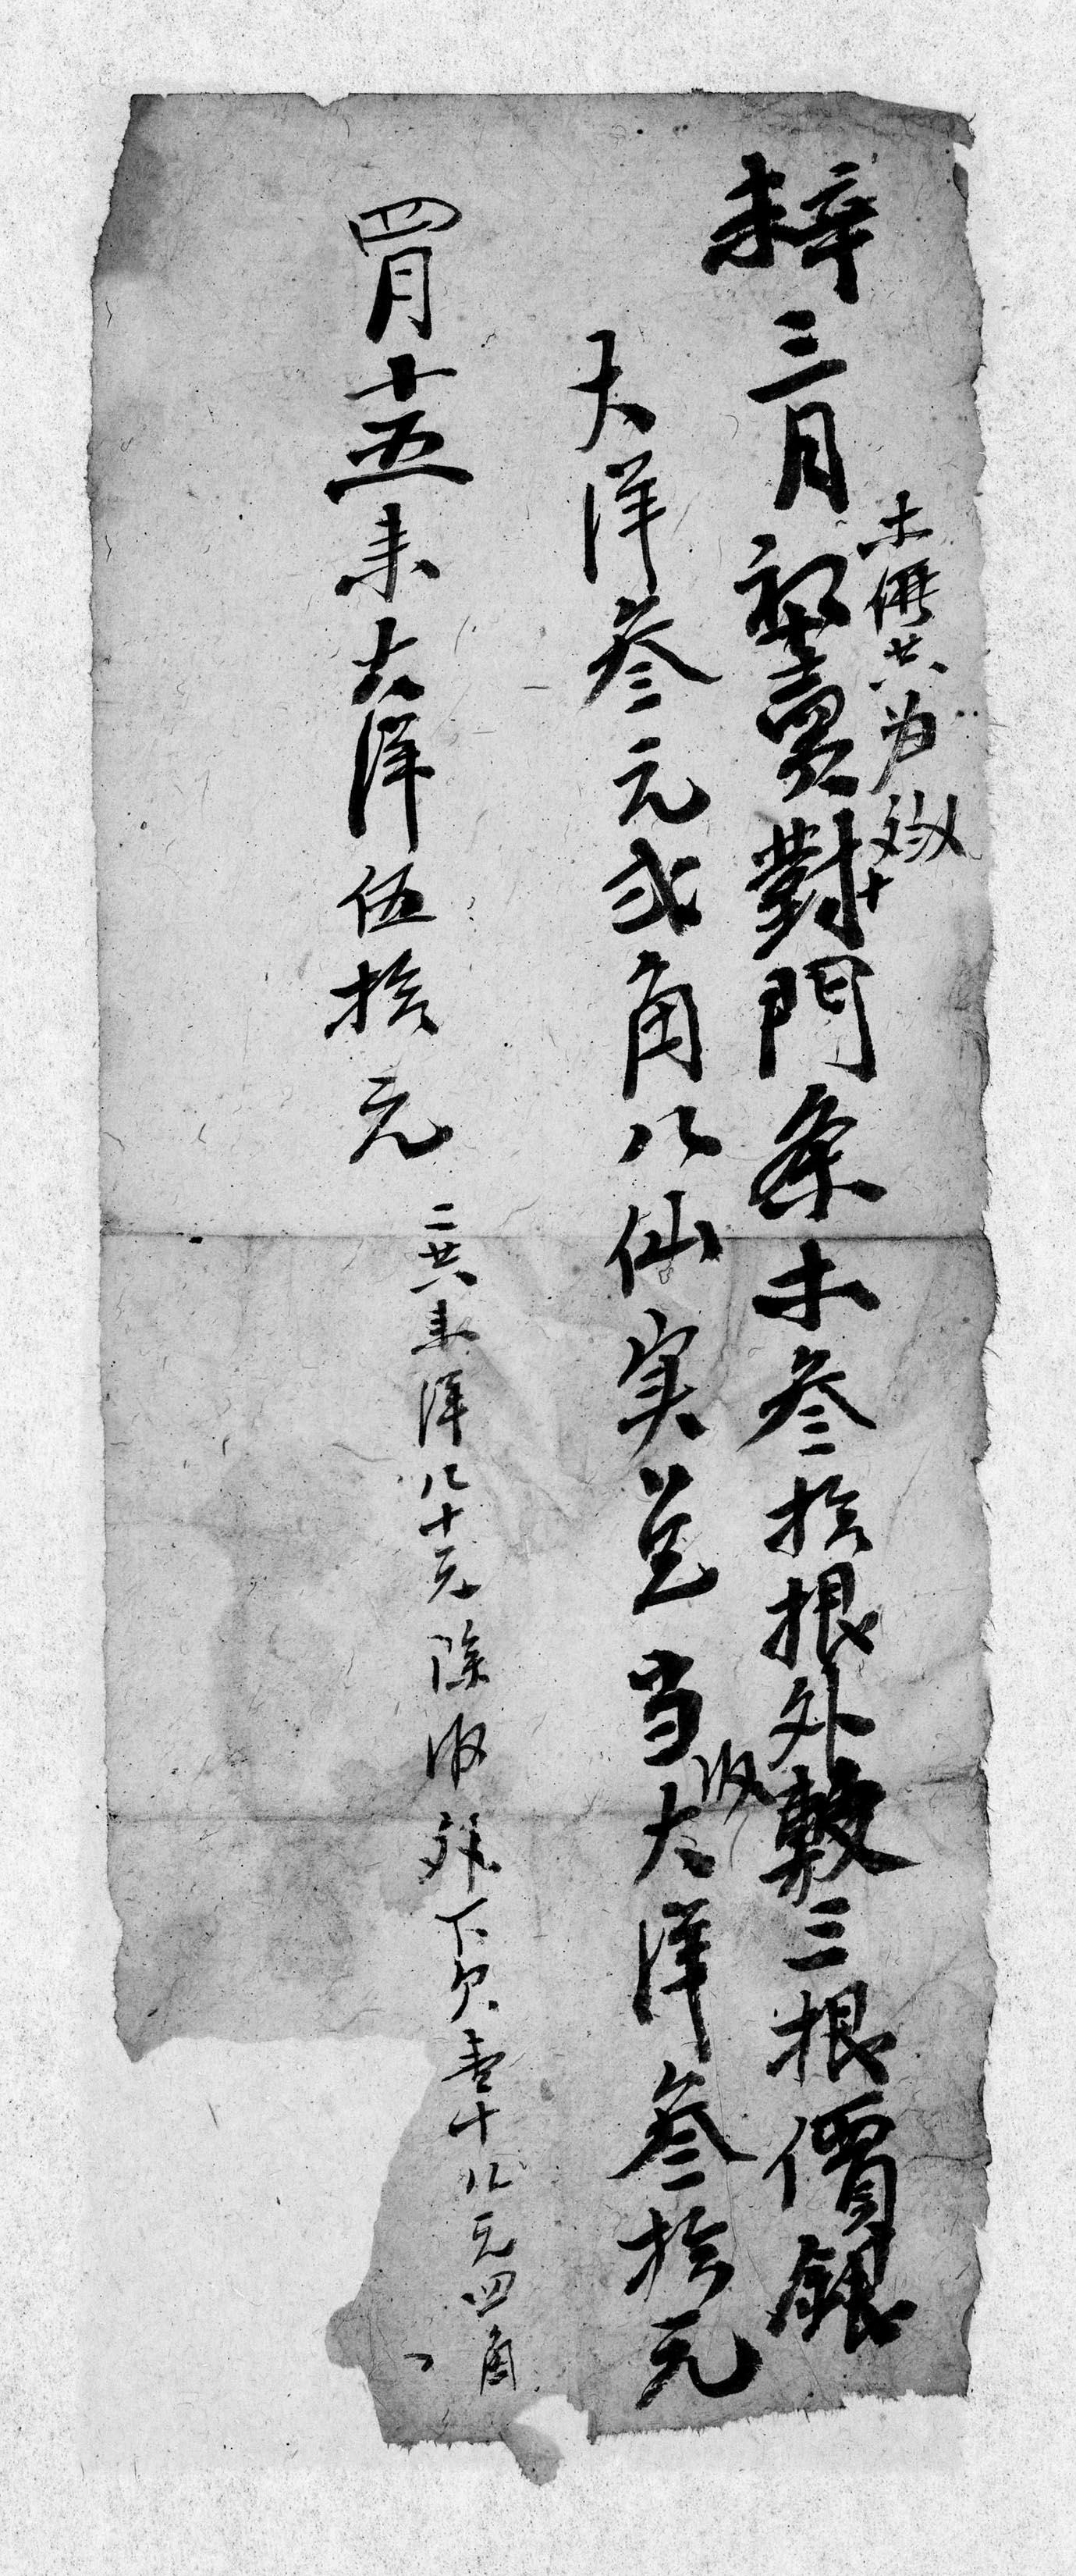 辛未三月初十賣對門条木叁拾根外敷三根價銀
木俩共为
大洋叁元弍角八仙实兑当收大洋叁拾元
四月十五来大洋伍拾元
二廿六来洋八十元除收外下欠壹十八元四角